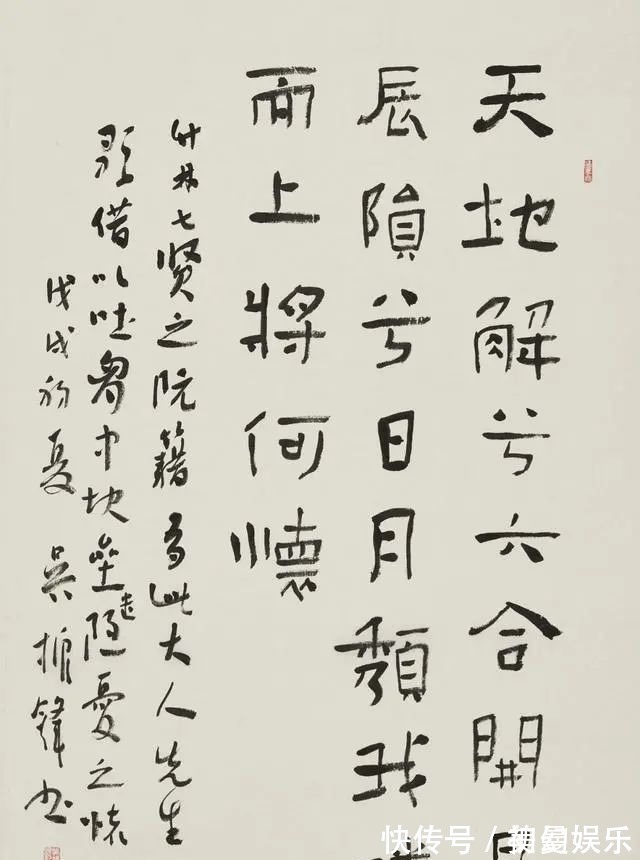 天地解兮六合開
辰隕兮日月頹我
而上將何懷
竹林七贤之阮籍此大人先生
歌借以吐胷中块垒遣隐憂之怀
戊戌初夏 吴振锋书
快传号 / 娱乐